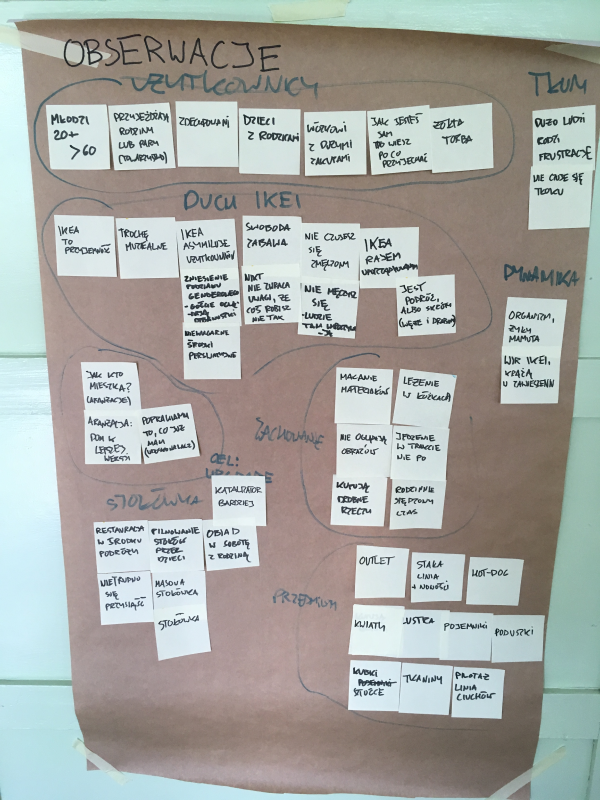 OBSERWACJE
UŻYTKOWNICY
MŁODZI
20+
>60
PRZYJEŻDŻAJĄ
RODZINY
LUB PARY
(TOWARZYSTWO)
DZIECI
Z RODZICAMI
WÓZKOWI
Z DUŻYMI
ZAKUPAMI
JAK JESTEŚ
SAM
TO WIESZ
PO CO
PRZYJECHAĆ
ŻÓŁTA
TORBA
TŁUM
DUŻO LUDZI
RODZI
FRUSTRACJĘ
NIE CHCE SIĘ
TŁOKU
DUCH IKEI
IKEA
TO PRZYJEMNOŚĆ
TROCHĘ
MUZEALNE
IKEA
ASYMILUJE
UŻYTKOWNIKÓW
SWOBODA
ZABAWA
NIE CZUJESZ
SIĘ
ZMĘCZONY
IKEA
RAZEM
ZNIESIENIE
PODZIAŁU
GENDEROWEGO
NIKT
NIE ZWRACA
UWAGI, ŻE
COŚ ROBISZ
NIE TAK
NIE MĘCZYSZ
SIĘ
-LUDZIE
TAM
JEST
PODRÓŻ,
ALBO SKRÓTY
(WĘŻE I DRABINY)
NIENACHALNE
ŚRODKI
PERSWAZYJNE
DYNAMIKA
ORGANIZM,
ŻYŁY
MAMUTA
WIR IKEI,
KRĄŻĄ
W ZAWIESZENIU
JAK KTO
MIESZKA?
(ARANŻACJE)
ARANŻACJA:
DOM W
LEPSZEJ
WERSJI
POPRAWIAMY
TO, CO JUŻ
MAM
CEL:
ZACHOWANIE
MACANIE
MATERIAŁÓW
LEŻENIE
W ŁÓŻKACH
NIE OGLĄDAJĄ
OBRAZÓW
JEDZENIE
W TRAKCIE
NIE PO
KUPUJĄ
DROBNE
RZECZY
RODZINNIE
SPĘDZONY
CZAS
STOŁÓWKA
KATALIZATOR
BARDZIEJ
RESTAURACJA
W ŚRODKU
PODRÓŻY
PILNOWANIE
STOŁÓW
PRZEZ
DZIECI
OBIAD
W SOBOTĘ
Z RODZINĄ
NIETRUDNO
SIĘ
PRZYSIĄŚĆ
MASOWA
STOŁÓWKA
STOŁÓWKA
PRZEDMIOTY
OUTLET
STAŁA
LINIA
+ NOWOŚCI
HOT-DOG
KWIATY
LUSTRA
POJEMNIKI
PODUSZKI
KUBKI
TKANINY
PILOTAŻ
LINIA
CIUCHÓW